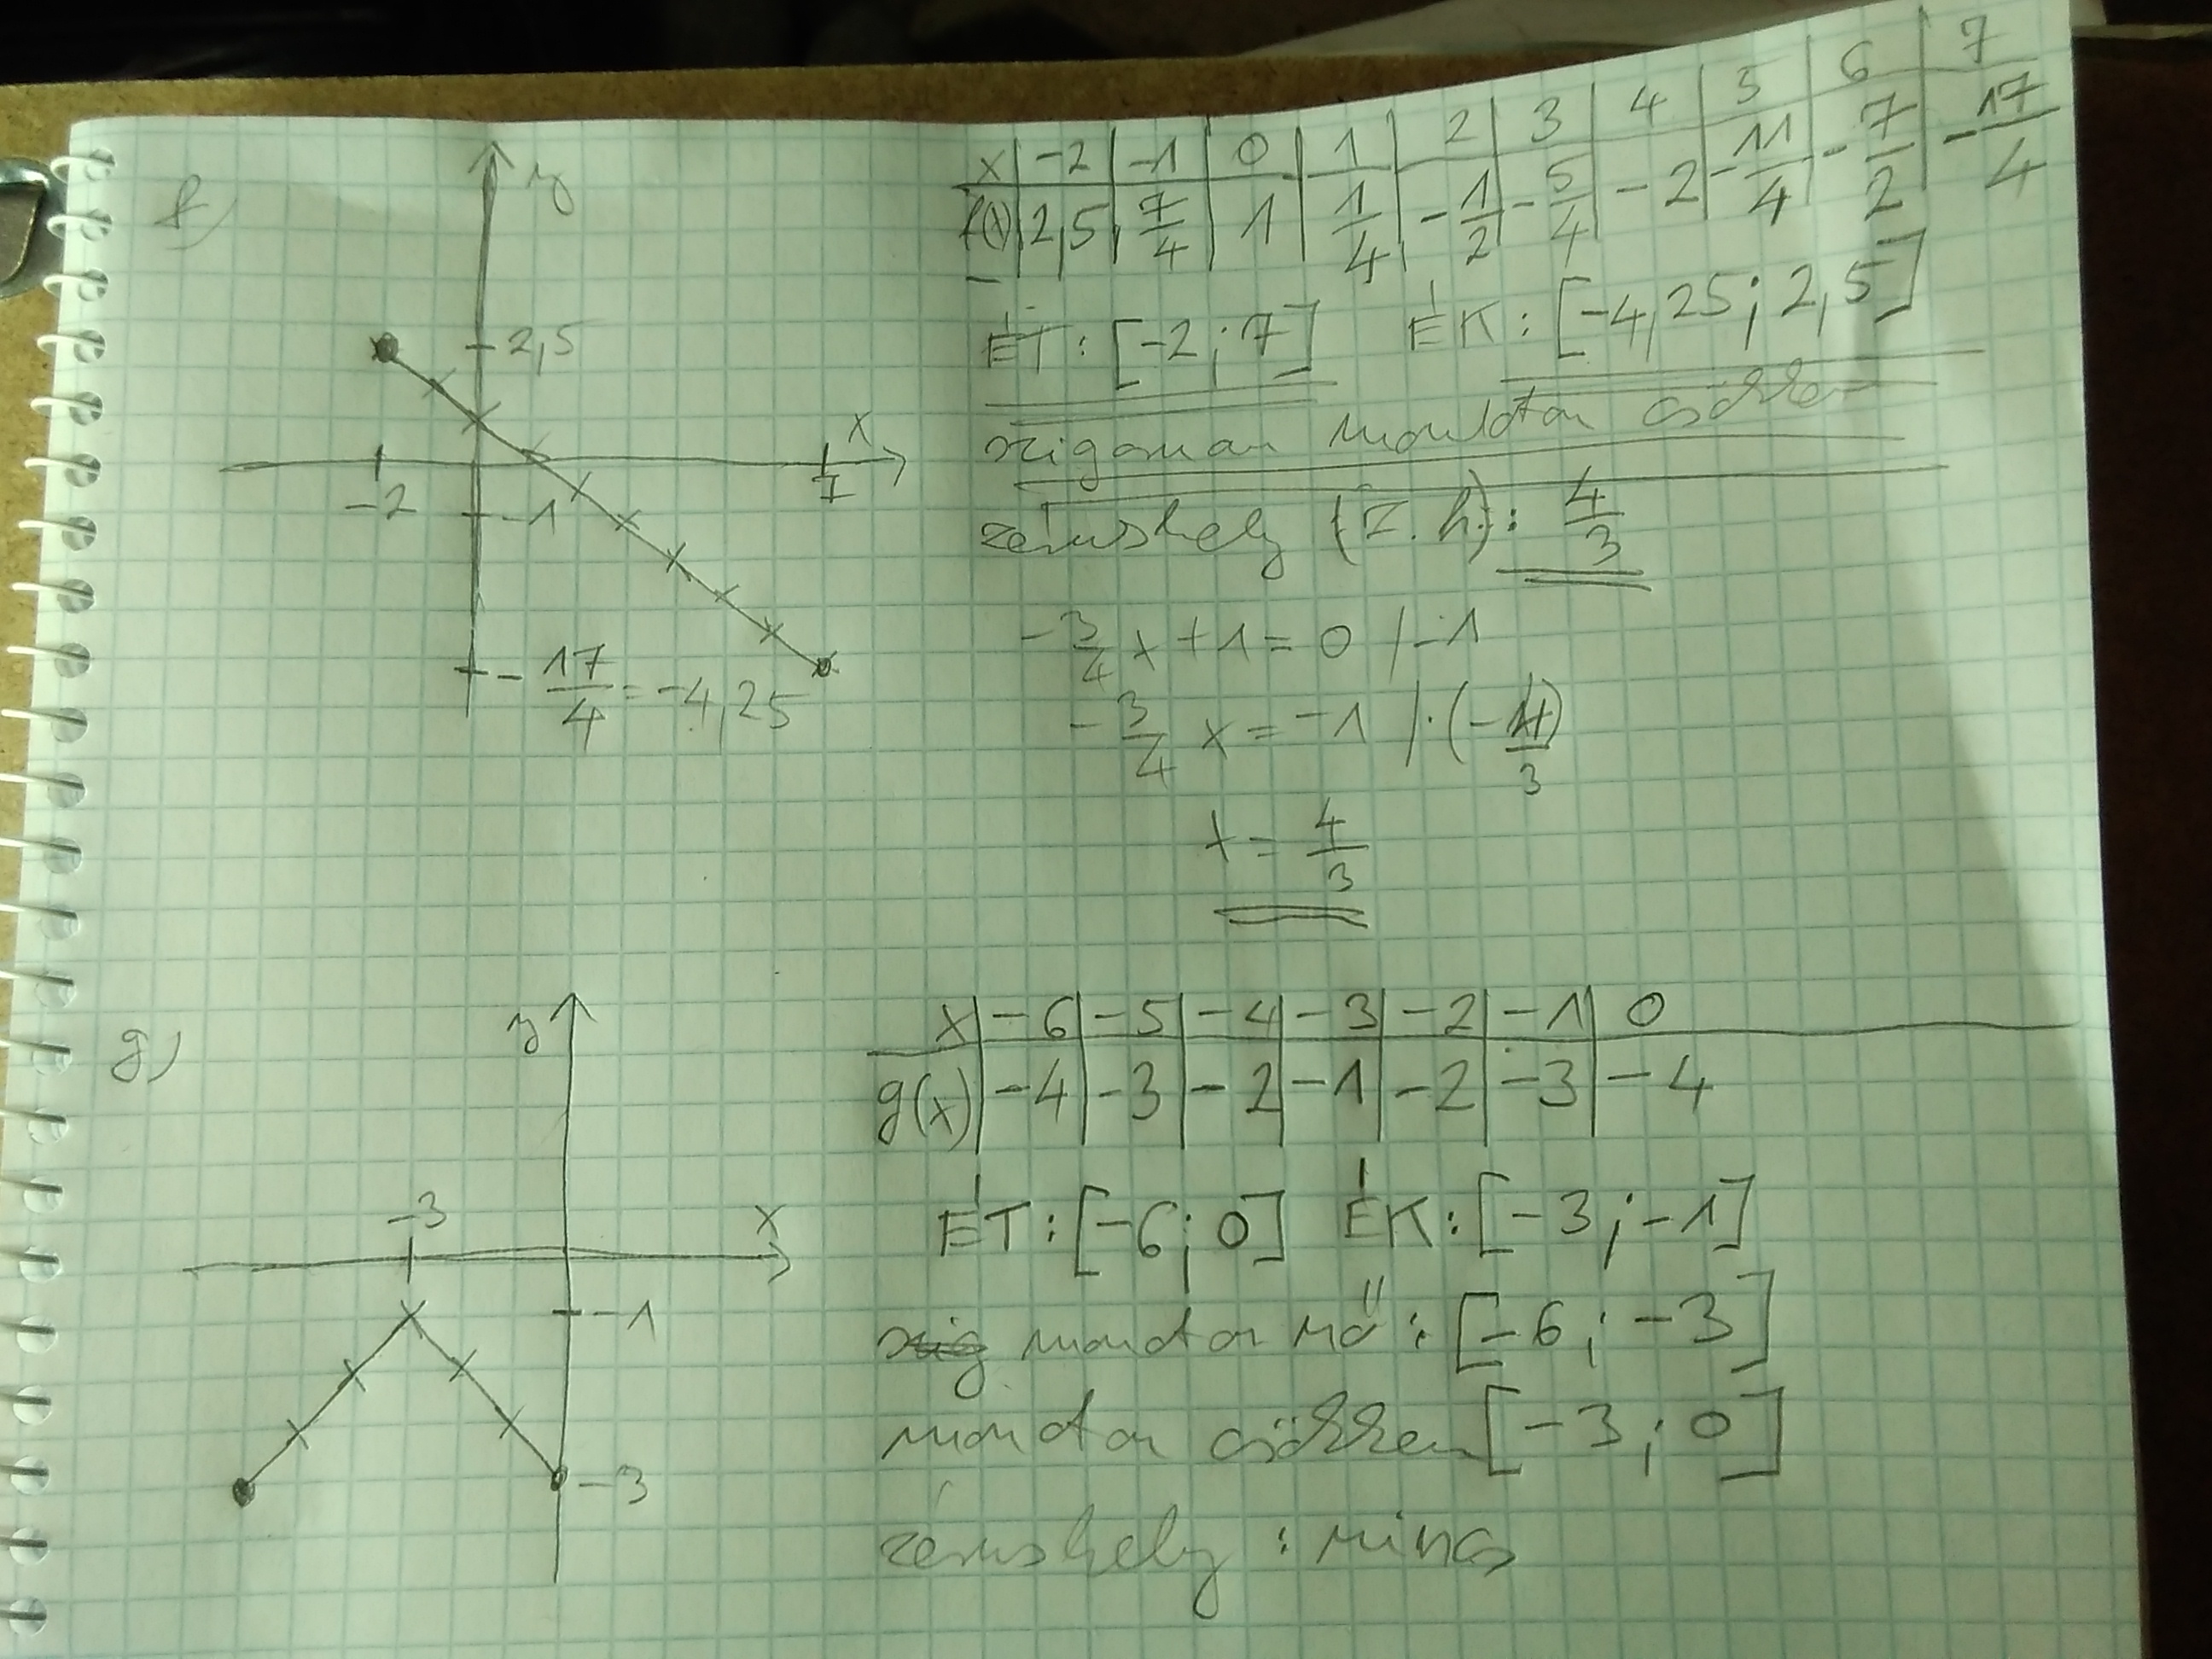 f)
y
2,5
x
-2
7
-1
-17/4 = -4,25
x | -2 | -1 | 0 | 1 | 2 | 3 | 4 | 5 | 6 | 7
f(x) | 2,5 | 7/4 | 1 | 1/4 | -1/2 | -5/4 | -2 | -11/4 | -7/2 | -17/4
ÉT: [-2; 7] ÉK: [-4,25; 2,5]
szigorúan monoton csökken
zérushely (z. h.): 4/3
-3/4 x + 1 = 0 /-1
-3/4 x = -1 /·(-4/3)
x = 4/3
g)
y
-3
x
-1
-3
x | -6 | -5 | -4 | -3 | -2 | -1 | 0
g(x) | -4 | -3 | -2 | -1 | -2 | -3 | -4
ÉT: [-6; 0] ÉK: [-3; -1]
monoton nő: [-6; -3]
monoton csökken [-3; 0]
zérushely: nincs